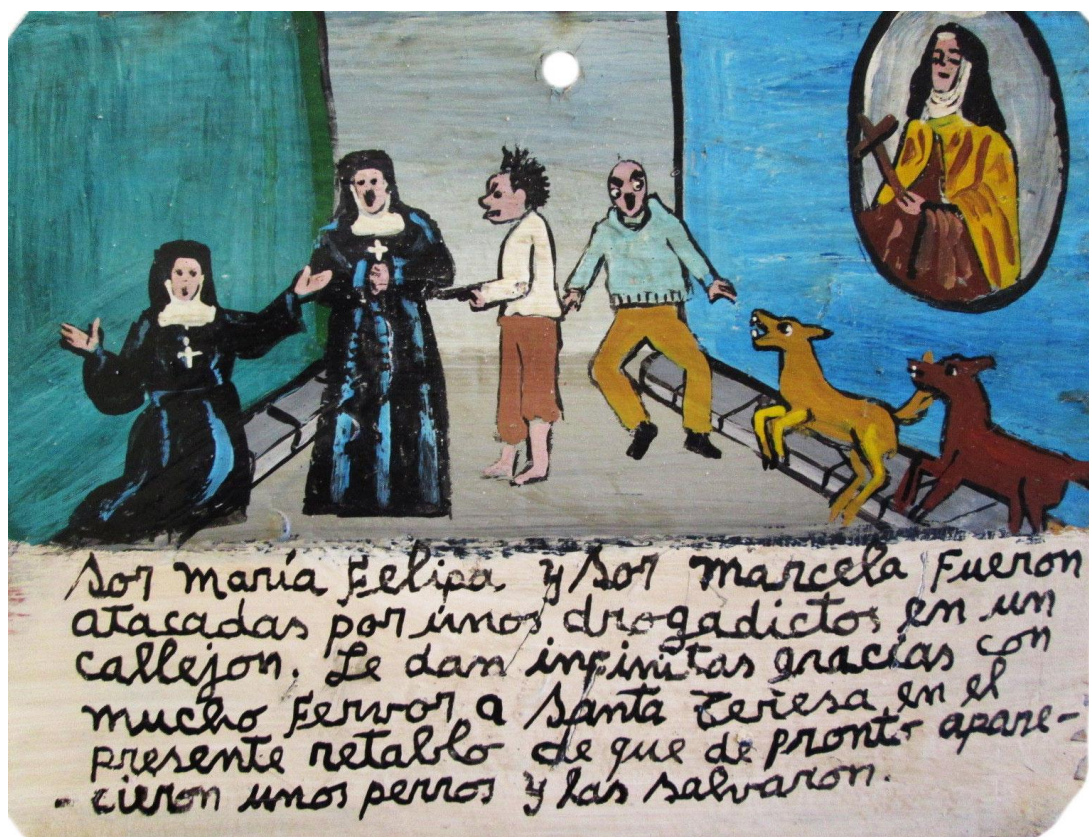 Sor María Felipa y Sor Marcela Fueron
atacadas por unos drogadictos en un
callejon. Le dan infinitas gracias con
mucho Fervor a Santa Teresa en el
presente retablo de que de pronto apare-
-cieron unos perros y las salvaron.